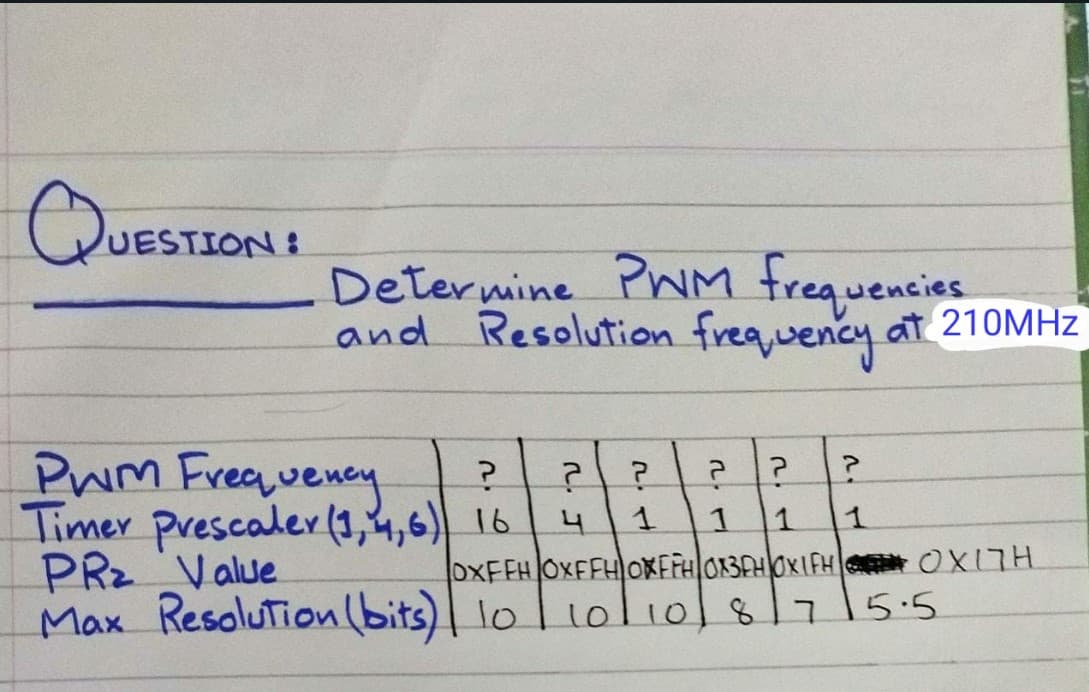 QUESTION :
Determine PWM frequencies
and Resolution frequency at 210MHz
PWM Frequency ? ? ? ? ? ?
Timer prescaler (1,4,6) 16 4 1 1 1 1
PR2 Value 0XFFH 0XFFH 0XFFH 0X3FH 0X1FH 0X17H
Max Resolution (bits) 10 10 10 8 7 5.5